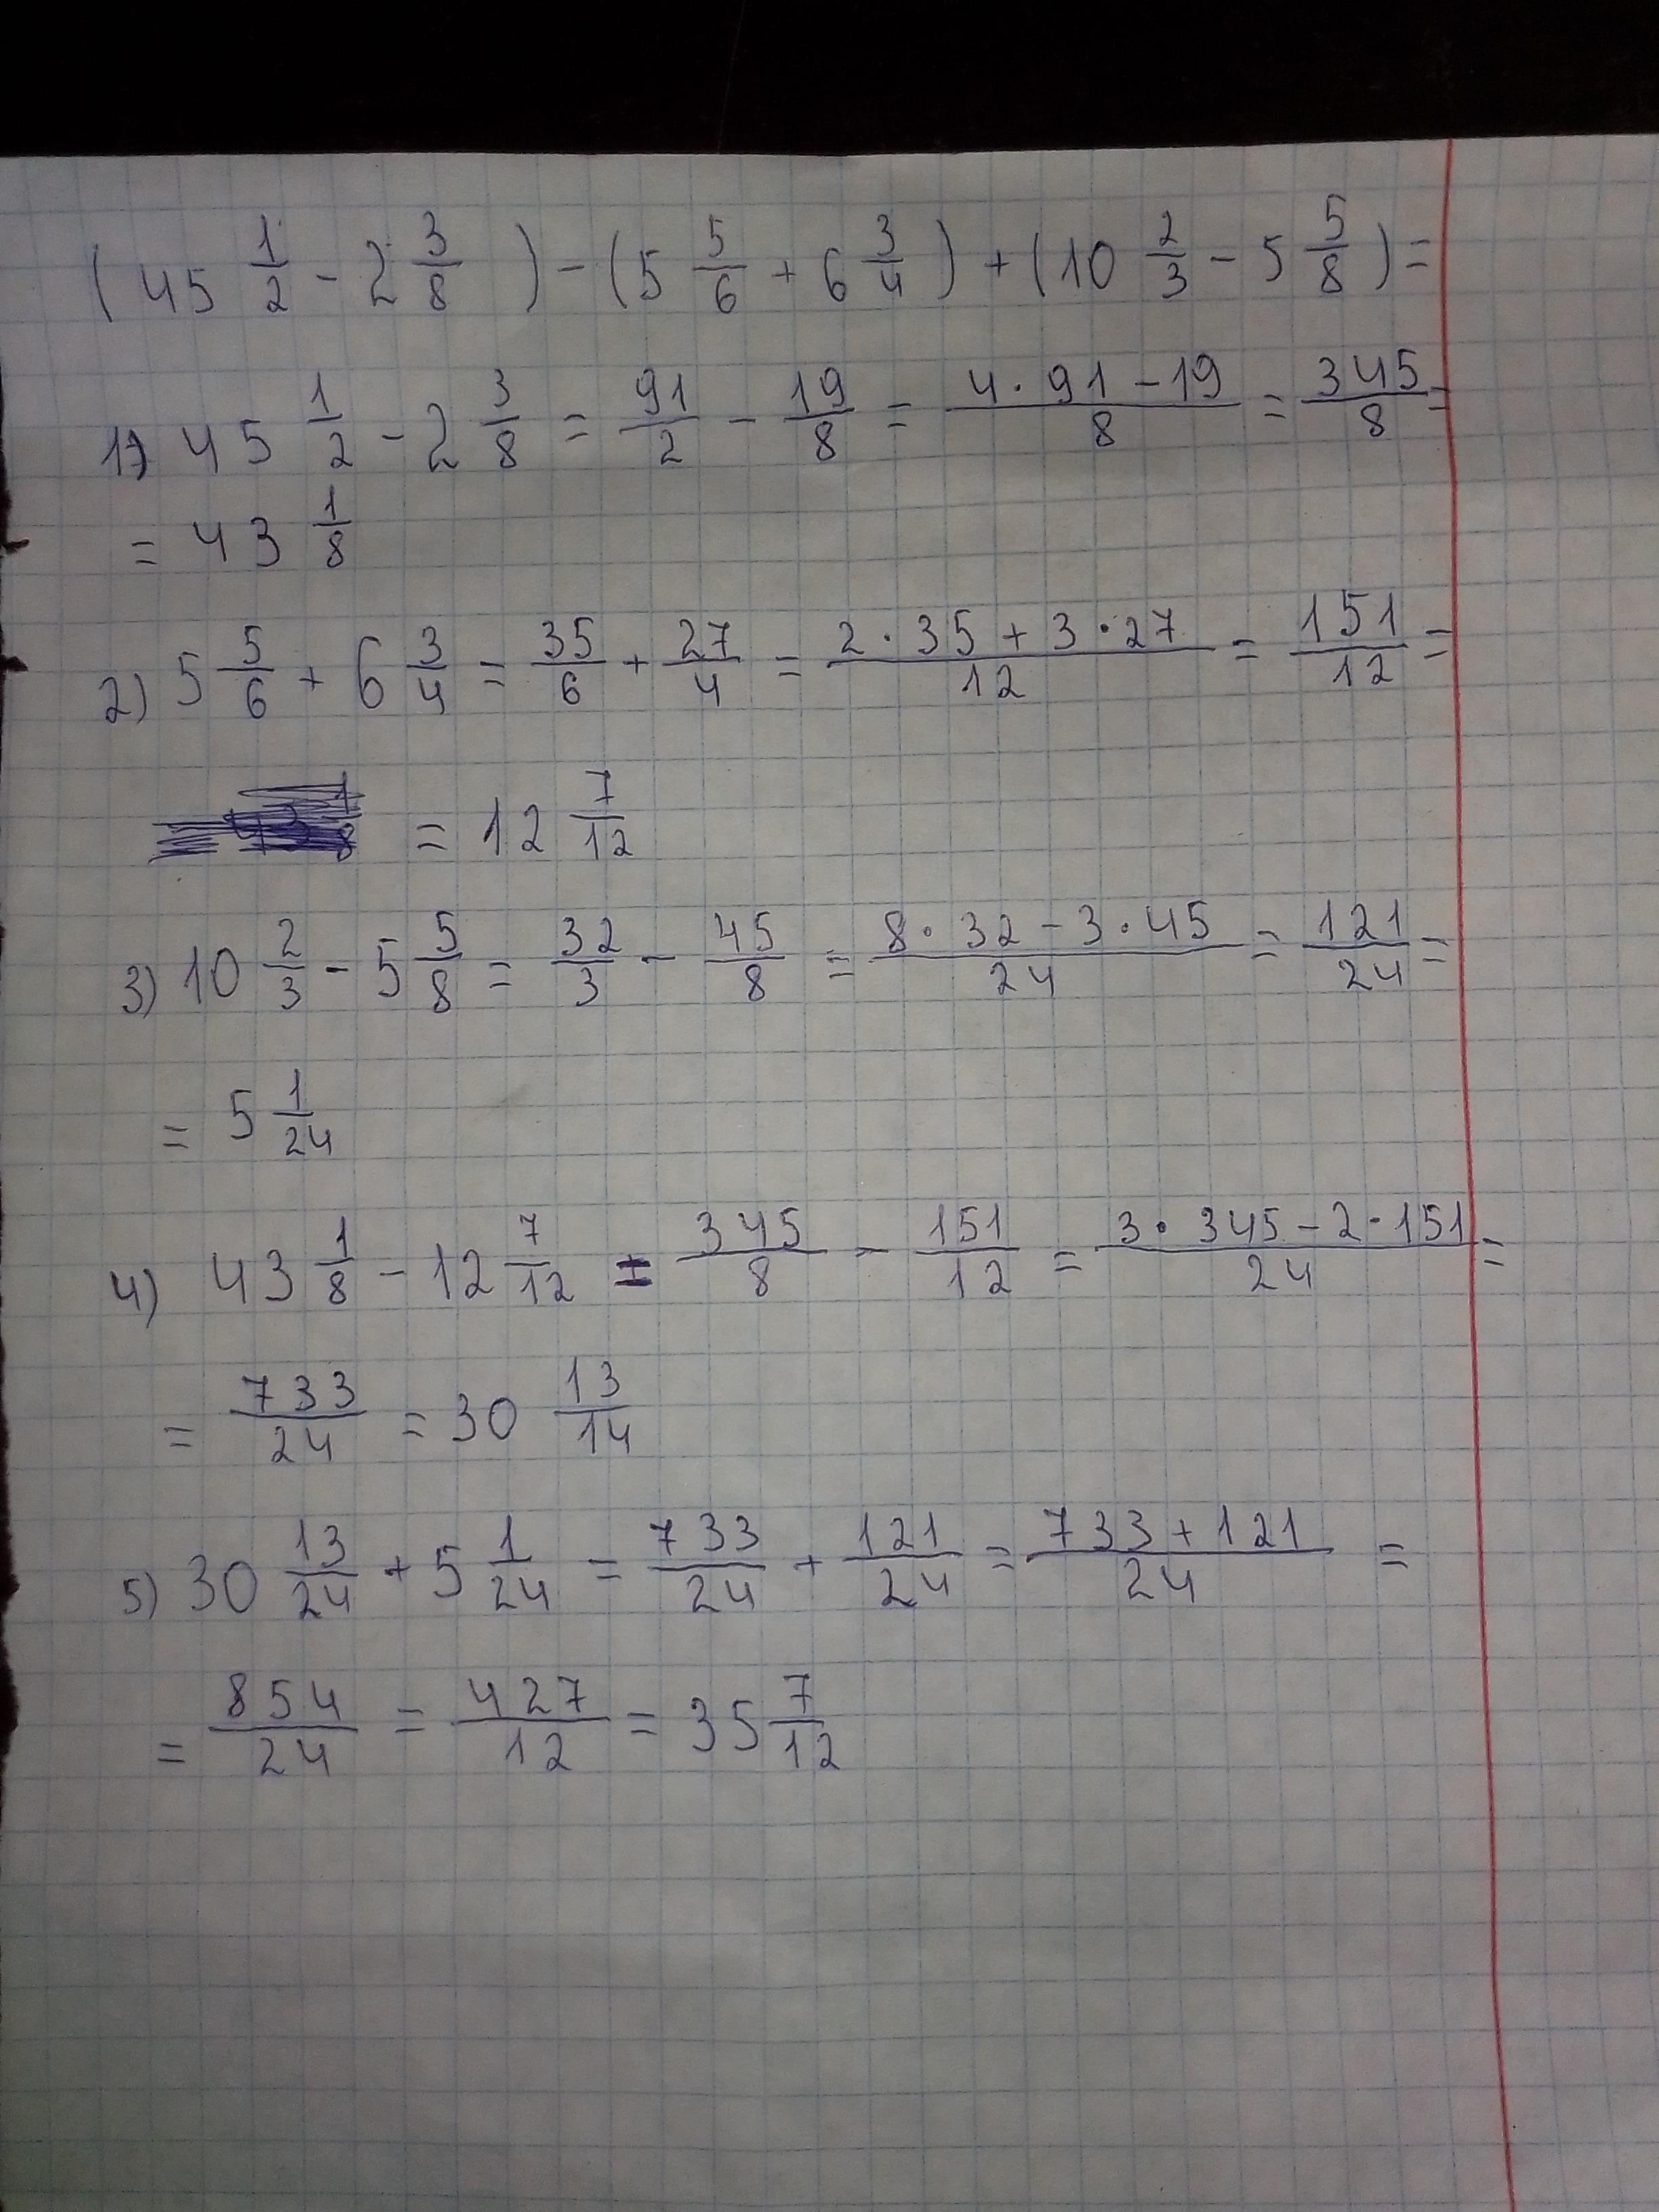 (45 1/2 - 2 3/8) - (5 5/6 + 6 3/4) + (10 2/3 - 5 5/8) =
1) 45 1/2 - 2 3/8 = 91/2 - 19/8 = (4·91-19)/8 = 345/8 =
= 43 1/8
2) 5 5/6 + 6 3/4 = 35/6 + 27/4 = (2·35+3·27)/12 = 151/12 =
= 12 7/12
3) 10 2/3 - 5 5/8 = 32/3 - 45/8 = (8·32-3·45)/24 = 121/24 =
= 5 1/24
4) 43 1/8 - 12 7/12 = 345/8 - 151/12 = (3·345-2·151)/24 =
= 733/24 = 30 13/14
5) 30 13/24 + 5 1/24 = 733/24 + 121/24 = (733+121)/24 =
= 854/24 = 427/12 = 35 7/12